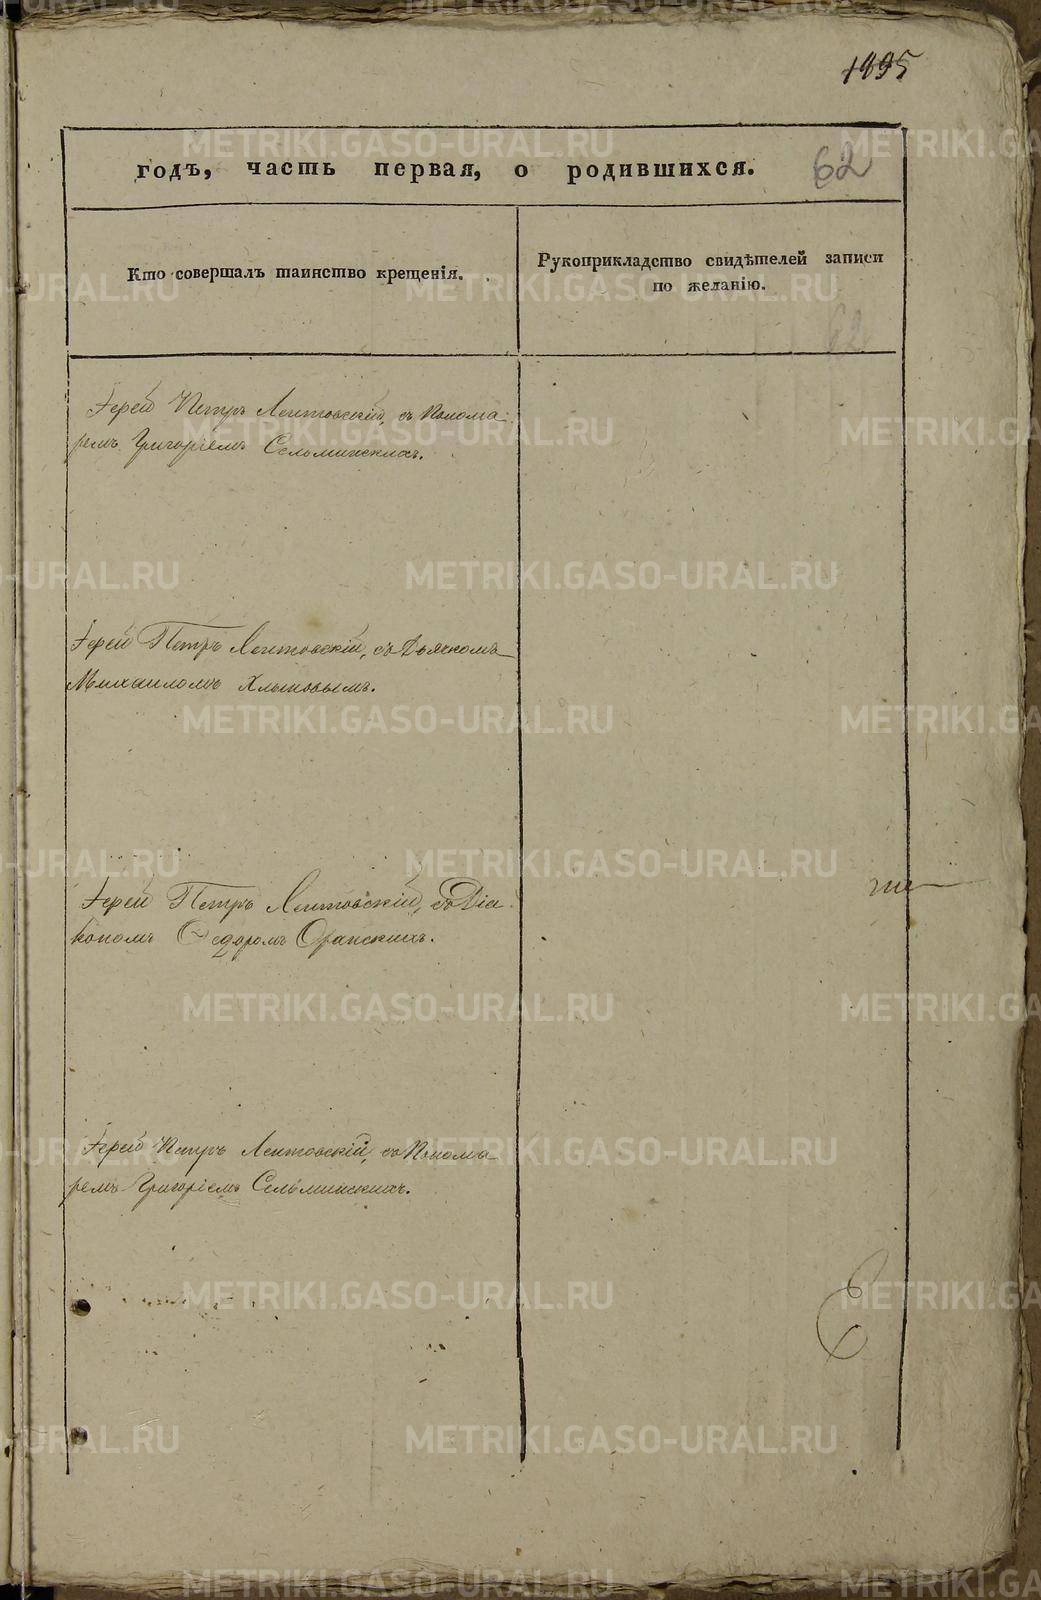 1895
годъ, часть первая, о родившихся.
62
Кто совершалъ таинство крещенія.
Рукоприкладство свидѣтелей записи
по желанію.
Іерей Петръ Лентовскій, съ Понома-
ремъ Григоріемъ Сельминскихъ.
Іерей Петръ Лентовскій, съ Дьячкомъ
Михаиломъ Хлыновымъ.
Іерей Петръ Лентовскій, съ Діа-
кономъ Ѳедоромъ Оранскихъ.
Іерей Петръ Лентовскій, съ Понома-
ремъ Григоріемъ Сельминскихъ.
METRIKI.GASO-URAL.RU